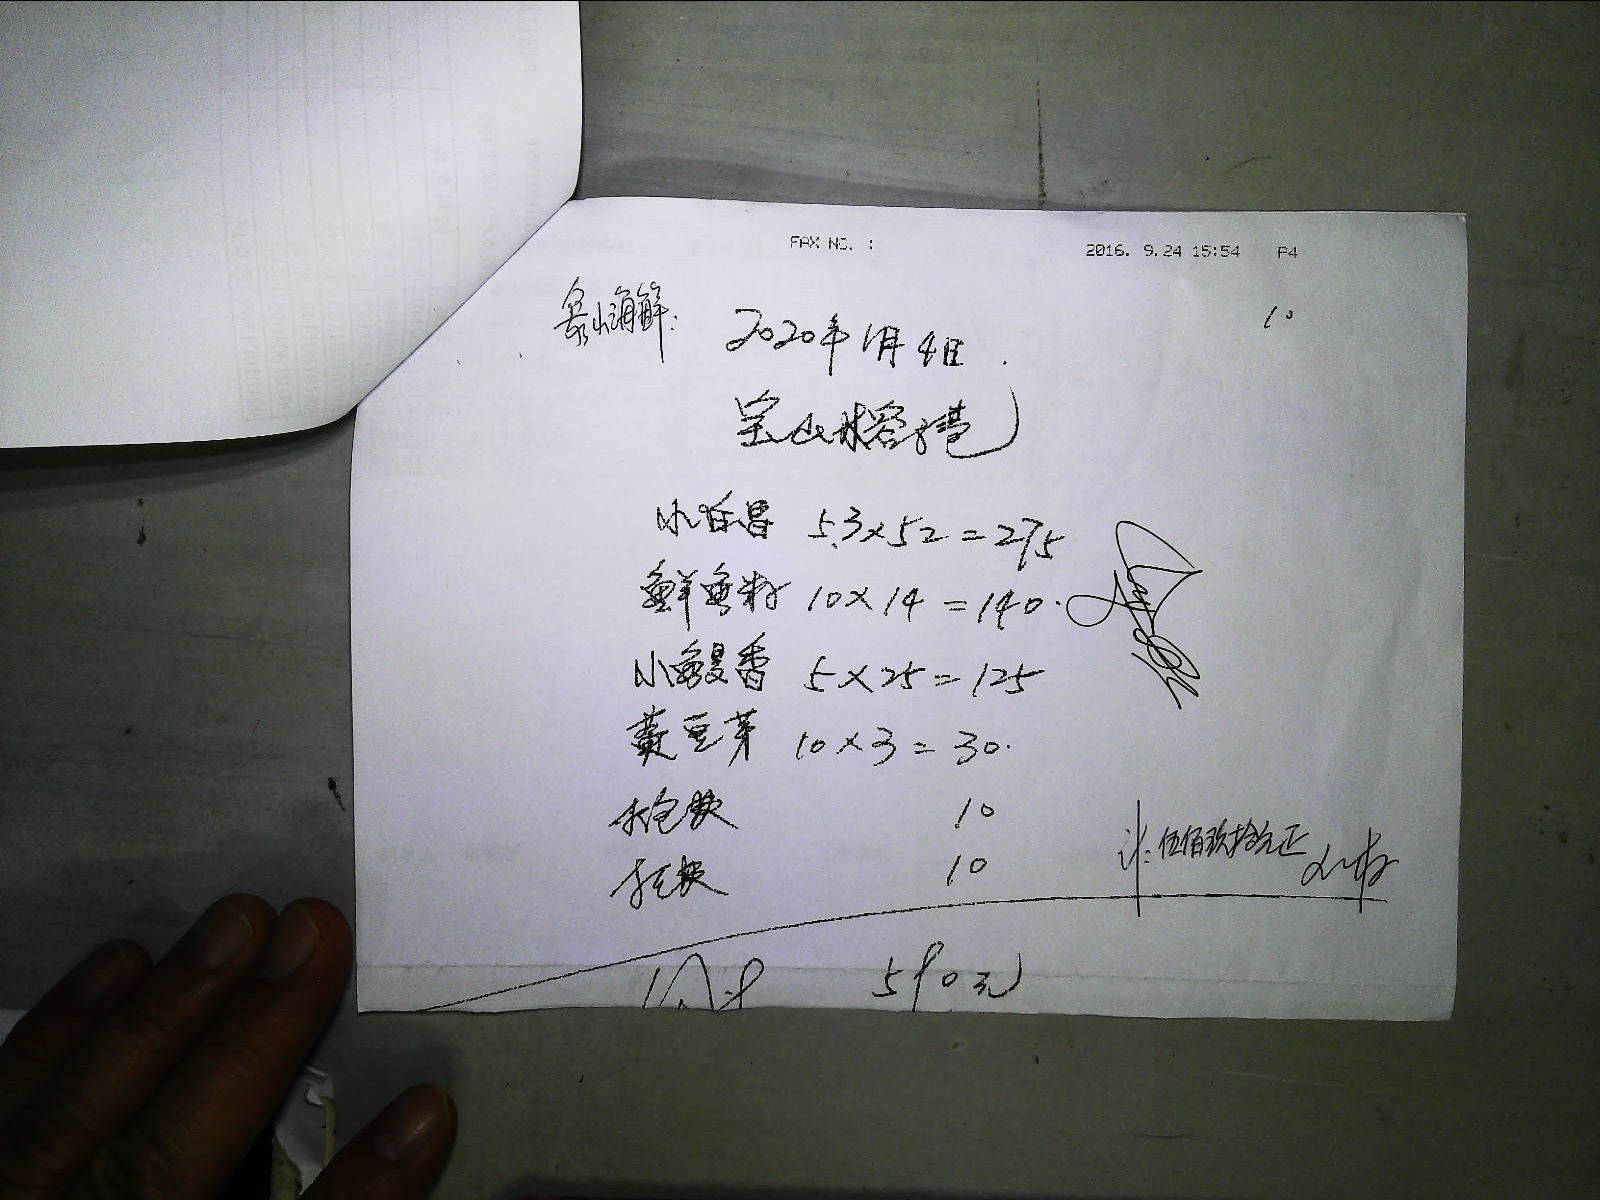 FAX NO. :
2016. 9.24 15:54 P4
10
泉山海鲜:
2020年1月4日
宝山
小白昌 5.3×52=275
鲜鱼籽 10×14=140.
小鳗香 5×25=125
黄豆芽 10×3=30.
10
10
计:伍佰玖拾元正
590元